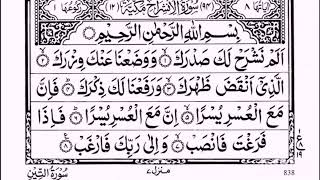 اٰیَاتُهَا ٨ (٩٤) سُوْرَةُ الْاِنْشِرَاحِ مَكِّيَّةٌ (١٢) رُكُوْعُهَا ١
بِسْمِ اللّٰهِ الرَّحْمٰنِ الرَّحِيْمِ
اَلَمْ نَشْرَحْ لَكَ صَدْرَكَ ۙ١ وَوَضَعْنَا عَنْكَ وِزْرَكَ ۙ٢
الَّذِيْٓ اَنْقَضَ ظَهْرَكَ ۙ٣ وَرَفَعْنَا لَكَ ذِكْرَكَ ؕ٤ فَاِنَّ
مَعَ الْعُسْرِ يُسْرًا ۙ٥ اِنَّ مَعَ الْعُسْرِ يُسْرًا ؕ٦ فَاِذَا
فَرَغْتَ فَانْصَبْ ۙ٧ وَاِلٰى رَبِّكَ فَارْغَبْ ٨
ع ٨ ١٩
سُوْرَةُ التِّيْنِ منزل ٧ 838